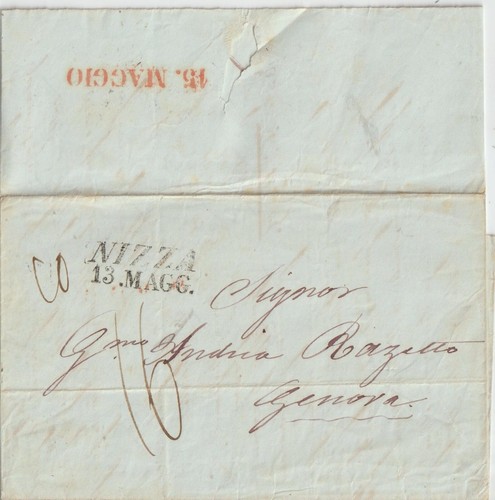 15. MAGGIO
NIZZA
13. MAGG.
Signor
Gmo Andria Razetto
Genova.